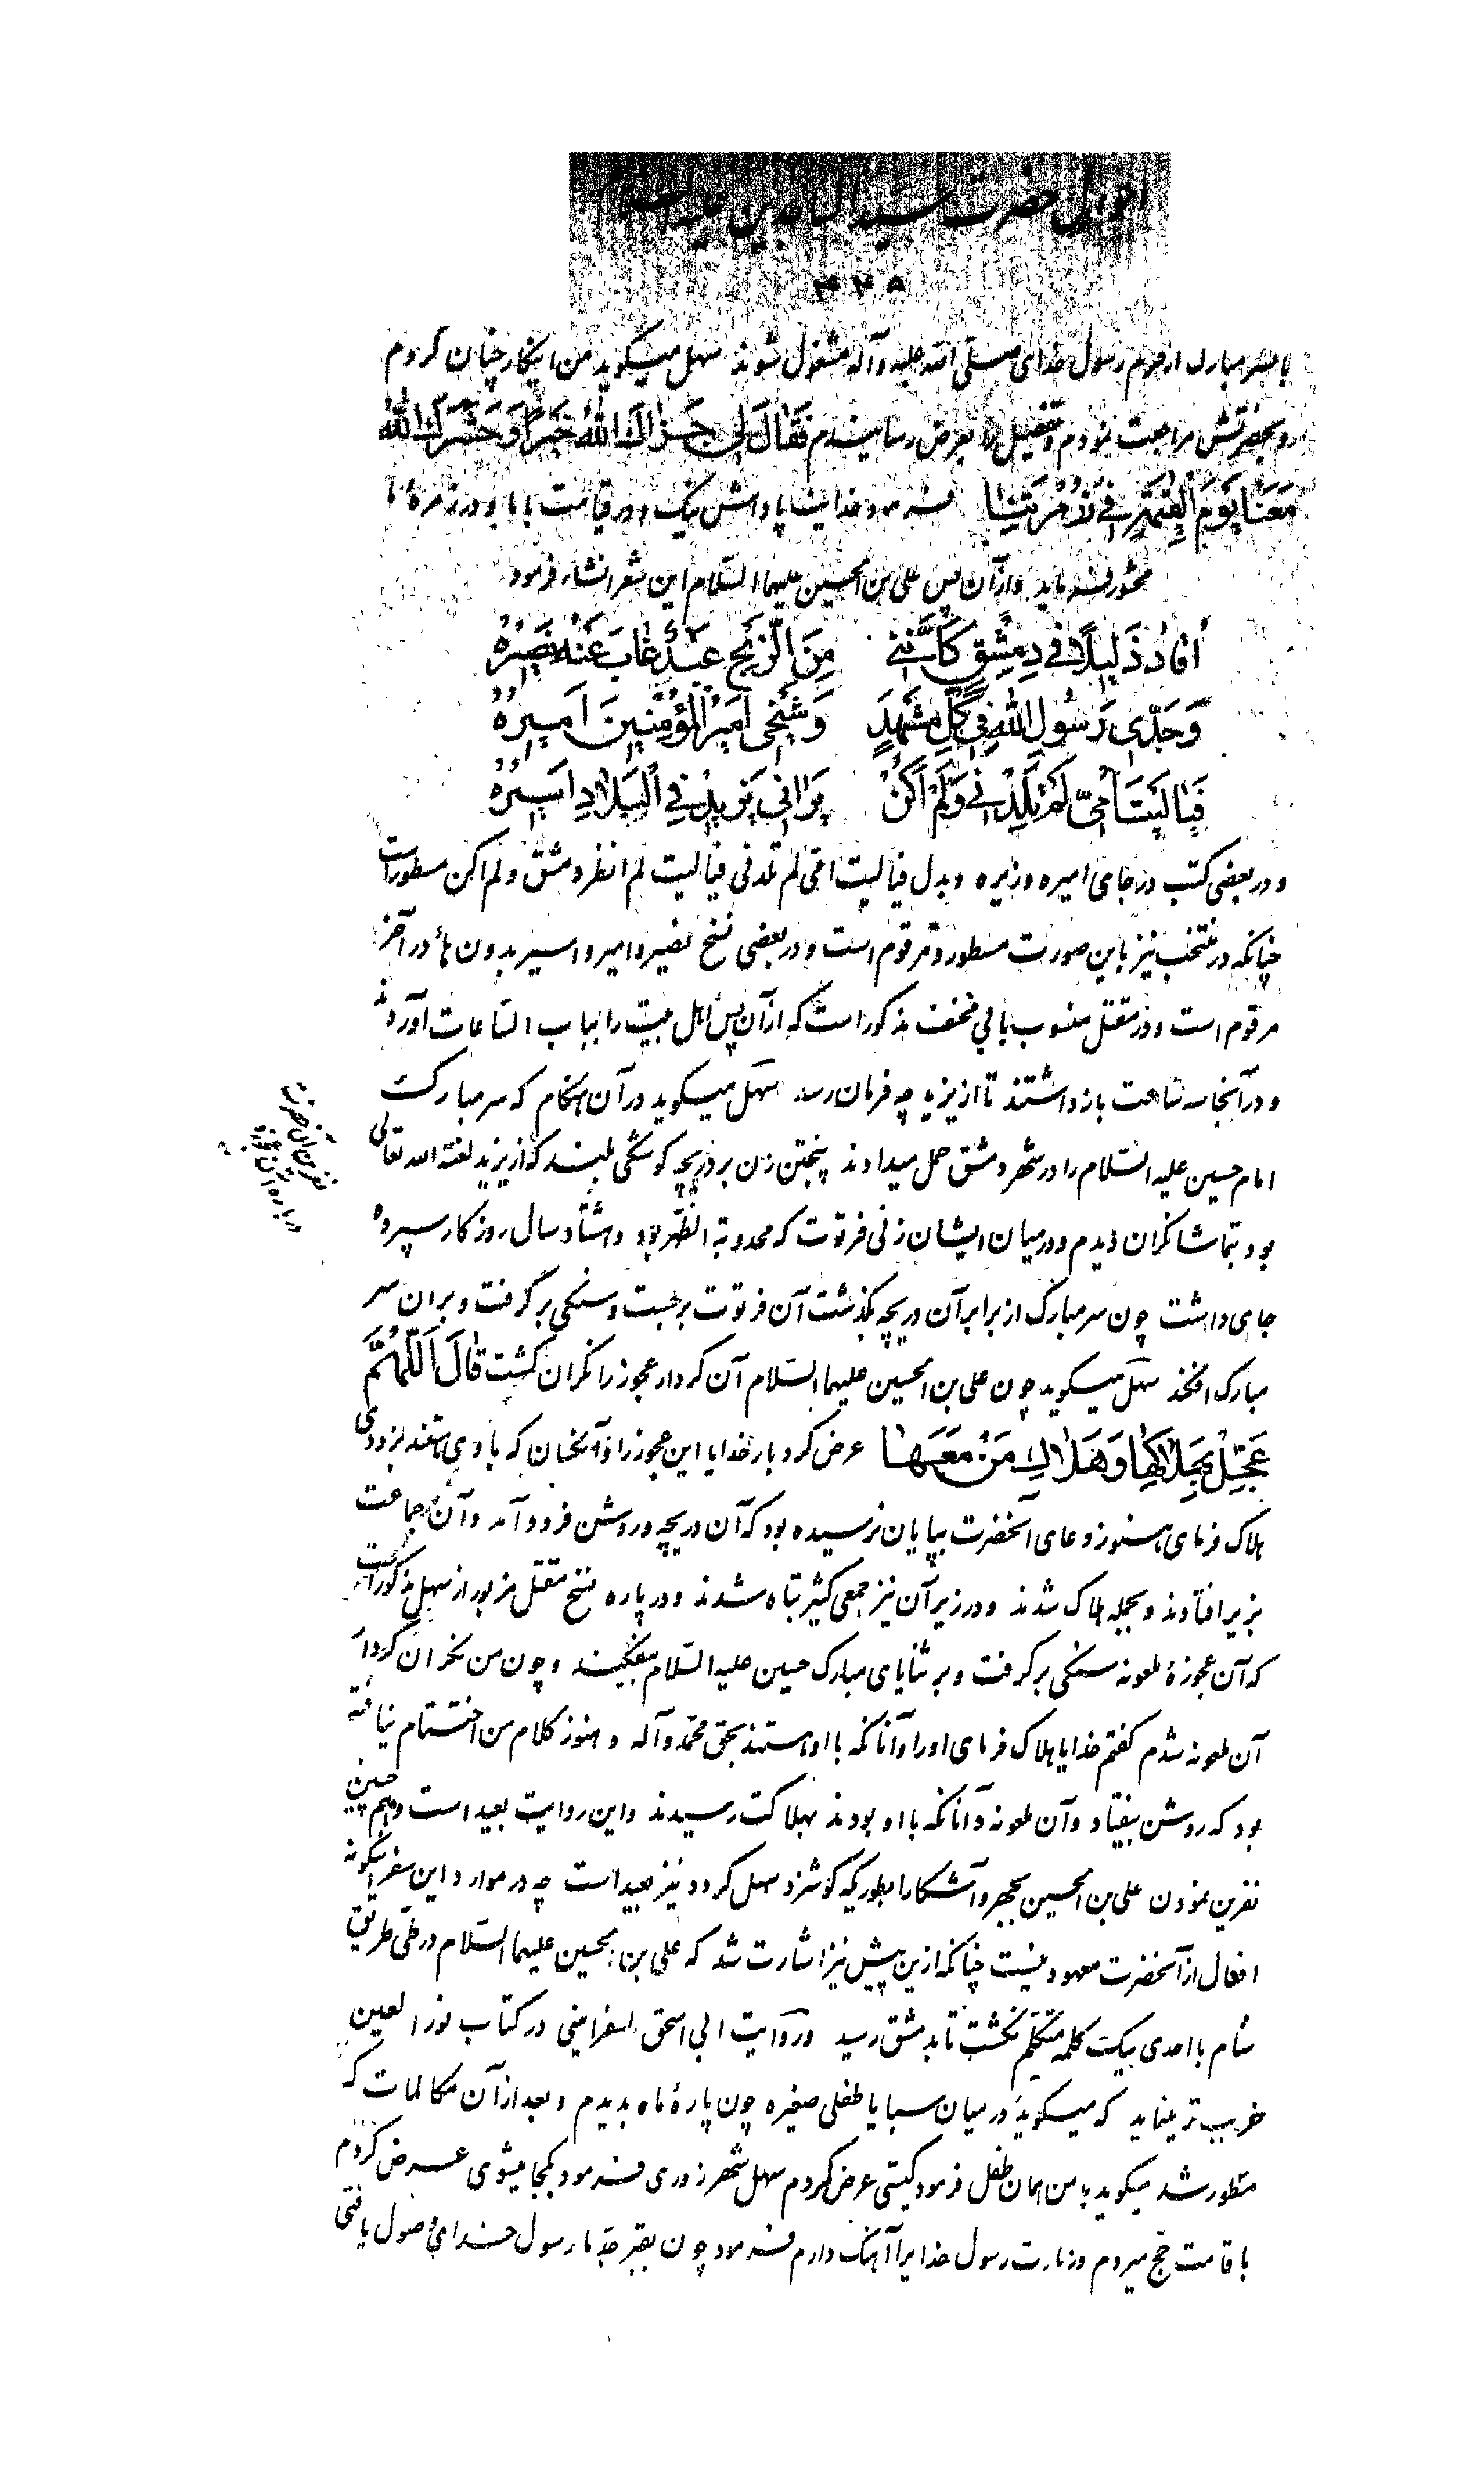 احوال حضرت سید الساجدین علیه السلام
۴۲۵
با سر مبارک از حرم رسول خدای صلی الله علیه وآله مشغول شوند سهل میگوید من اینکار چنان کردم
و بحضرتش مراجعت نمودم و تفصیل را بعرض رسانیدم فَقالَ لی جَزاكَ اللهُ خَیراً وَ حَشَرَكَ اللهُ
مَعَنا یَومَ القِیمَةِ فی زُمرَتِنا فرمود خدایت پاداش نیک و در قیامت با ما و در زمرهٔ ما
محشور فرماید و از آن پس علی بن الحسین علیهما السّلام این شعر انشاء فرمود
أُقادُ ذَلیلاً فی دِمَشقٍ كَأَنَّنی مِنَ الزَّنجِ عَبدٌ غابَ عَنهُ نَصیرُهُ
وَ جَدّی رَسُولُ اللهِ فی كُلِّ مَشهَدٍ وَ شَیخی اَمیرُ المُؤمِنینَ اَمیرُهُ
فَیا لَیتَ اُمّی لَم تَلِدنی وَ لَم اَكُن یَرانی یَزیدُ فی البِلادِ اَسیرُهُ
و در بعضی کتب در جای امیره وزیره و بدل فیا لیت امّی لم تلدنی فیا لیت لم انظر دمشق و لم اکن مسطور است
چنانکه در منتخب نیز باین صورت مسطور و مرقوم است و در بعضی نسخ نصیر و امیر و اسیر بدون هاء در آخر
مرقوم است و در مقتل منسوب بابی مخنف مذکور است که از آن پس اهل بیت را بباب الساعات آوردند
و در آنجا سه ساعت باز داشتند تا از یزید چه فرمان رسد سهل میگوید در آن هنگام که سر مبارک
امام حسین علیه السّلام را در شهر دمشق حمل میدادند پنجتن زن بر دریچه کوشکی بلند که از یزید لعنه الله تعالی
بود بتماشا نگران دیدم و در میان ایشان زنی فرتوت که محدوبة الظّهر بود و هشتاد سال روزگار سپرده
جای داشت چون سر مبارک از برابر آن دریچه بگذشت آن فرتوت برجست و سنگی برگرفت و بر آن سر
مبارک افکند سهل میگوید چون علی بن الحسین علیهما السّلام آن کردار عجوز را نگران گشت قالَ اَللّهُمَّ
عَجِّل بِهَلاكِها وَ هَلاكِ مَن مَعَها عرض کرد بار خدایا این عجوز را و آنکسان که با وی هستند بزودی
هلاک فرمای هنوز دعای آنحضرت بپایان نرسیده بود که آن دریچه و روشن فرود آمد و آن جماعت
بزیر افتادند و بجمله هلاک شدند و در زیر آن نیز جمعی کثیر تباه شدند و در پاره نسخ مقتل مزبور از سهل مذکور است
که آن عجوزهٔ ملعونه سنگی برگرفت و بر ثنایای مبارک حسین علیه السّلام بیفکند و چون من نگران کردار
آن ملعونه شدم گفتم خدایا هلاک فرمای او را و آنانکه با او هستند بحق محمّد و آله و هنوز کلام من اختتام نیافته
بود که روشن بیفتاد و آن ملعونه و آنانکه با او بودند بهلاکت رسیدند و این روایت بعید است و همچنین
نفرین نمودن علی بن الحسین بجهر و آشکارا بطوریکه گوشزد سهل گردد نیز بعید است چه در موارد این سفر اینگونه
افعال از آنحضرت معهود نیست چنانکه ازین پیش نیز اشارت شد که علی بن الحسین علیهما السّلام در طیّ طریق
شام با احدی بیک کلمه متکلّم نگشت تا بدمشق رسید و روایت ابی اسحق اسفراینی در کتاب نور العین
غریب‌تر مینماید که میگوید در میان سبایا طفلی صغیره چون پارهٔ ماه بدیدم و بعد از آن مکالمات که
مسطور شد میگوید با من همان طفل فرمود کیستی عرض کردم سهل شهرزوری فرمود بکجا میشوی عرض کردم
باقامت حج میروم و زیارت رسول خدایرا آهنگ دارم فرمود چون بقبر جدّ ما رسول خدای وصول یافتی
نفرین آن حضرت
درباره آن عجوزه